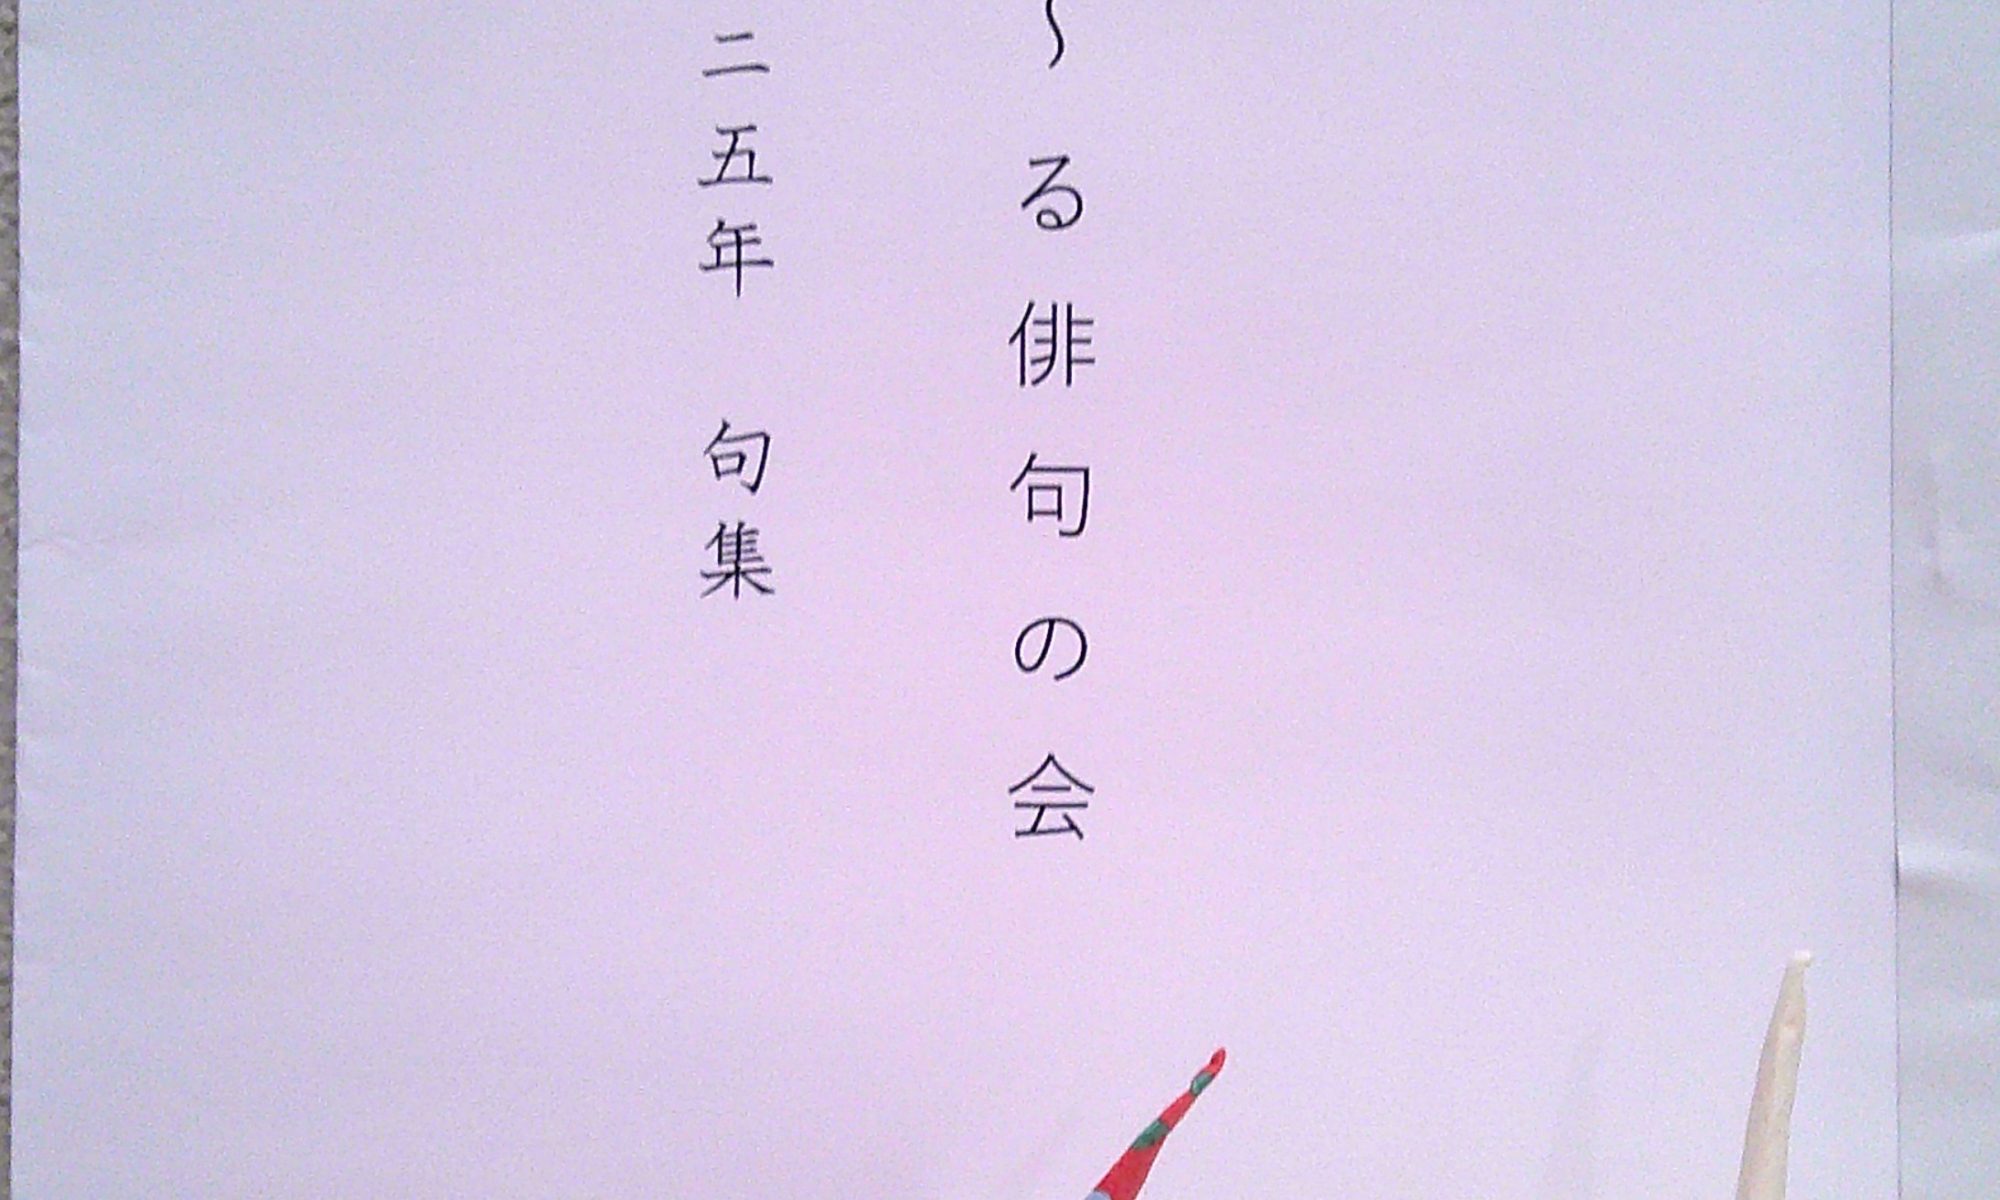 る俳句の会
二五年 句集